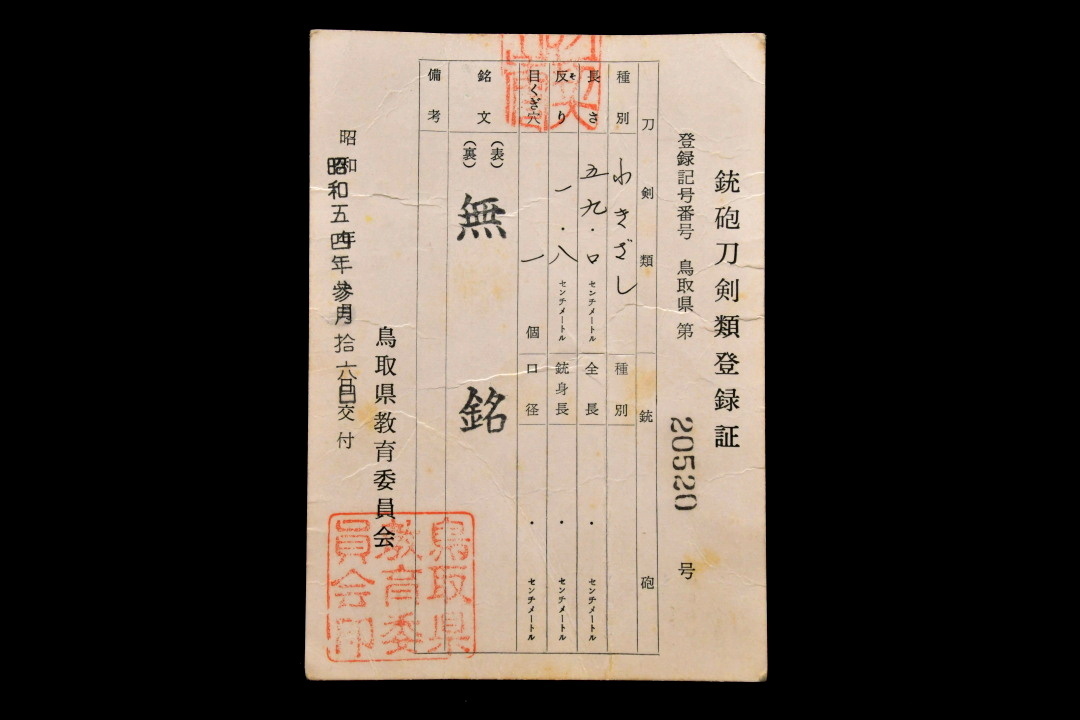 銃砲刀剣類登録証
登録記号番号 鳥取県 第 20520 号
刀剣類 銃砲
種別 わきざし 種別
長さ 五九・〇 センチメートル 全長 ・ センチメートル
反り そ 一・八 センチメートル 銃身長 ・ センチメートル
目くぎ穴 一 個 口径 ・ センチメートル
銘文 (表) 無銘
(裏)
備考
鳥取県教育委員会
昭和 年 月 日 交付
昭和五四年参月拾六日
鳥取県
教育委
員会印